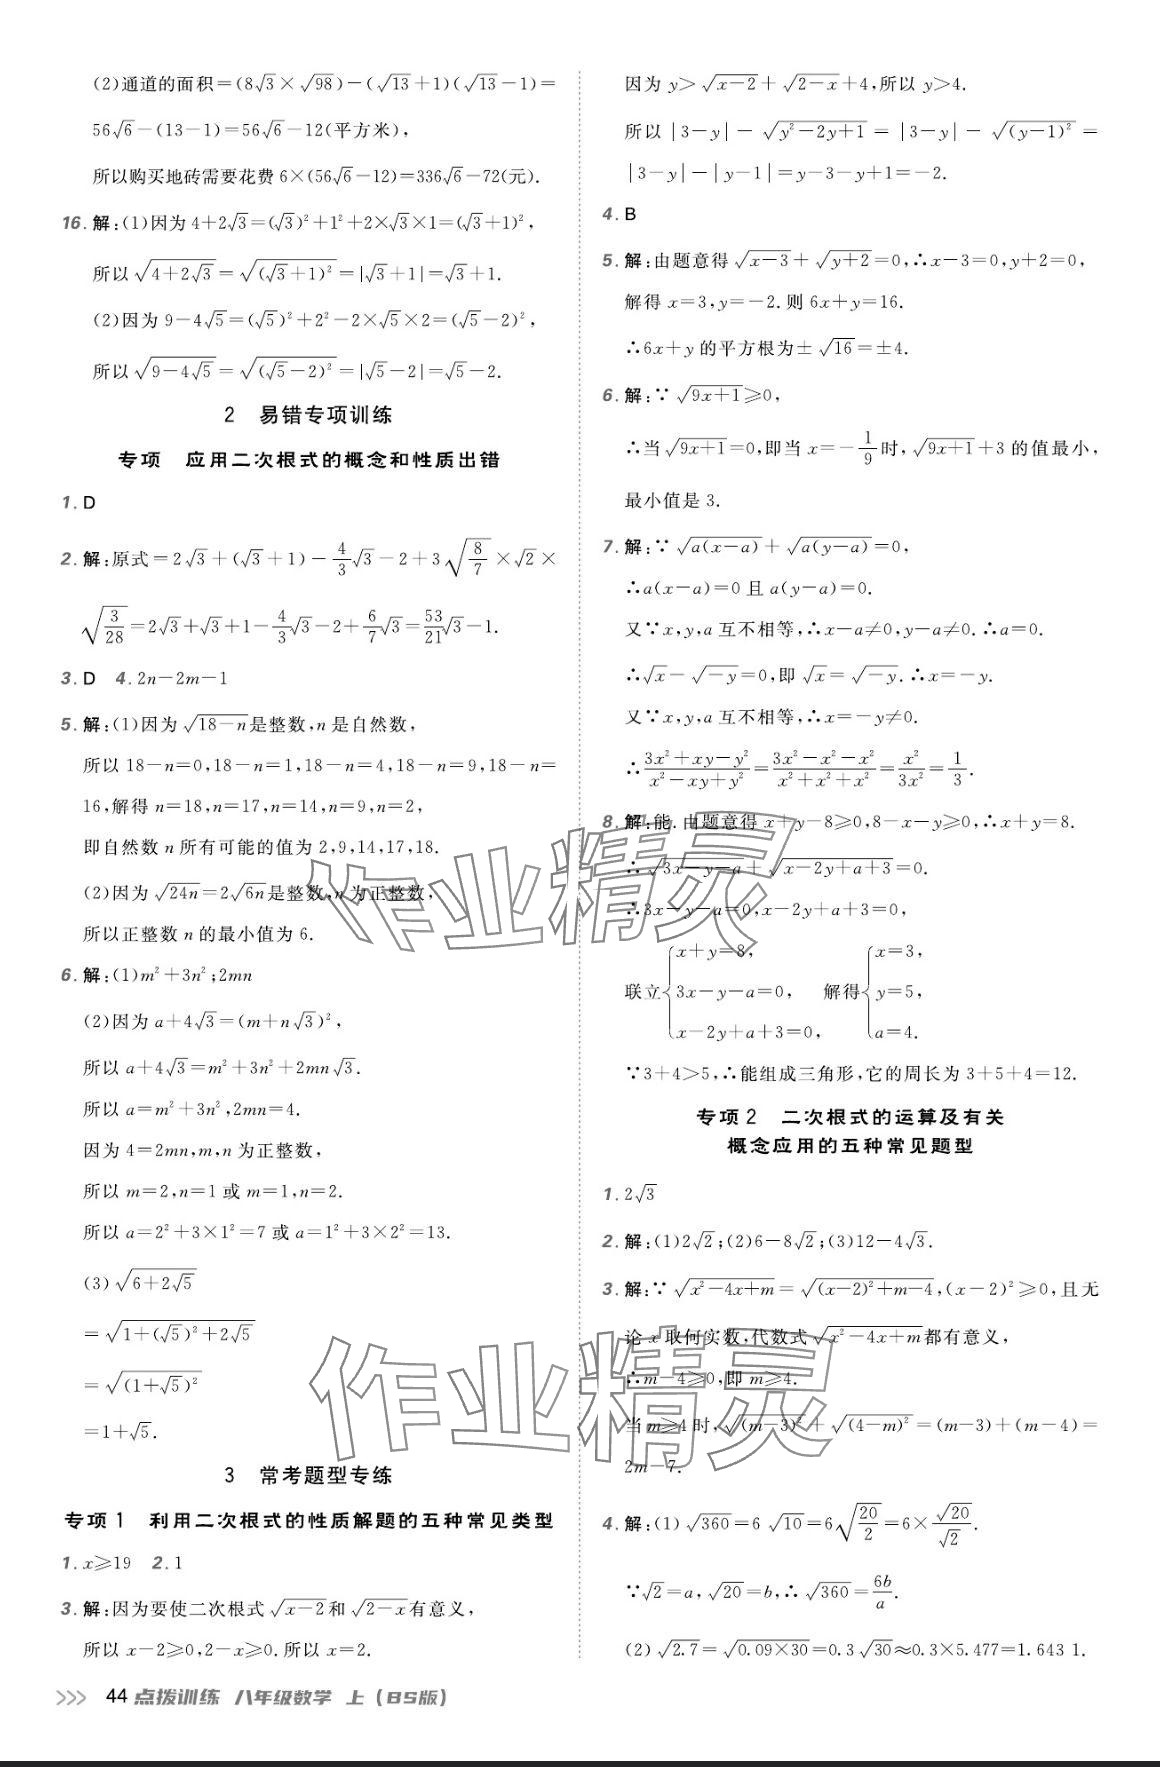 (2)通道的面积=(8√3×√98)-(√13+1)(√13-1)=
56√6-(13-1)=56√6-12(平方米),
所以购买地砖需要花费6×(56√6-12)=336√6-72(元).
16.解:(1)因为4+2√3=(√3)²+1²+2×√3×1=(√3+1)²,
所以√(4+2√3)=√((√3+1)²)=|√3+1|=√3+1.
(2)因为9-4√5=(√5)²+2²-2×√5×2=(√5-2)²,
所以√(9-4√5)=√((√5-2)²)=|√5-2|=√5-2.
2 易错专项训练
专项 应用二次根式的概念和性质出错
1.D
2.解:原式=2√3+(√3+1)-4/3√3-2+3√(8/7)×√2×
√(3/28)=2√3+√3+1-4/3√3-2+6/7√3=53/21√3-1.
3.D 4.2n-2m-1
5.解:(1)因为√(18-n)是整数,n是自然数,
所以18-n=0,18-n=1,18-n=4,18-n=9,18-n=
16,解得n=18,n=17,n=14,n=9,n=2,
即自然数n所有可能的值为2,9,14,17,18.
(2)因为√(24n)=2√(6n)是整数,n为正整数,
所以正整数n的最小值为6.
6.解:(1)m²+3n²;2mn
(2)因为a+4√3=(m+n√3)²,
所以a+4√3=m²+3n²+2mn√3.
所以a=m²+3n²,2mn=4.
因为4=2mn,m,n为正整数,
所以m=2,n=1或m=1,n=2.
所以a=2²+3×1²=7或a=1²+3×2²=13.
(3)√(6+2√5)
=√(1+(√5)²+2√5)
=√((1+√5)²)
=1+√5.
3 常考题型专练
专项1 利用二次根式的性质解题的五种常见类型
1.x≥19 2.1
3.解:因为要使二次根式√(x-2)和√(2-x)有意义,
所以x-2≥0,2-x≥0.所以x=2.
因为y>√(x-2)+√(2-x)+4,所以y>4.
所以|3-y|-√(y²-2y+1)=|3-y|-√((y-1)²)=
|3-y|-|y-1|=y-3-y+1=-2.
4.B
5.解:由题意得√(x-3)+√(y+2)=0,∴x-3=0,y+2=0,
解得x=3,y=-2.则6x+y=16.
∴6x+y的平方根为±√16=±4.
6.解:∵√(9x+1)≥0,
∴当√(9x+1)=0,即当x=-1/9时,√(9x+1)+3的值最小,
最小值是3.
7.解:∵√(a(x-a))+√(a(y-a))=0,
∴a(x-a)=0且a(y-a)=0.
又∵x,y,a互不相等,∴x-a≠0,y-a≠0.∴a=0.
∴√x-√(-y)=0,即√x=√(-y).∴x=-y.
又∵x,y,a互不相等,∴x=-y≠0.
∴(3x²+xy-y²)/(x²-xy+y²)=(3x²-x²-x²)/(x²+x²+x²)=x²/3x²=1/3.
8.解:能.由题意得x+y-8≥0,8-x-y≥0,∴x+y=8.
∴√(3x-y-a)+√(x-2y+a+3)=0.
∴3x-y-a=0,x-2y+a+3=0,
联立{x+y=8, 3x-y-a=0, x-2y+a+3=0, 解得{x=3, y=5, a=4.
∵3+4>5,∴能组成三角形,它的周长为3+5+4=12.
专项2 二次根式的运算及有关
概念应用的五种常见题型
1.2√3
2.解:(1)2√2;(2)6-8√2;(3)12-4√3.
3.解:∵√(x²-4x+m)=√((x-2)²+m-4),(x-2)²≥0,且无
论x取何实数,代数式√(x²-4x+m)都有意义,
∴m-4≥0,即m≥4.
当m≥4时,√((m-3)²)+√((4-m)²)=(m-3)+(m-4)=
2m-7.
4.解:(1)√360=6√10=6√(20/2)=6×√20/√2.
∵√2=a,√20=b,∴√360=6b/a.
(2)√2.7=√(0.09×30)=0.3√30≈0.3×5.477=1.643 1.
44 点拨训练 八年级数学 上(BS版)
作业精灵
作业精灵